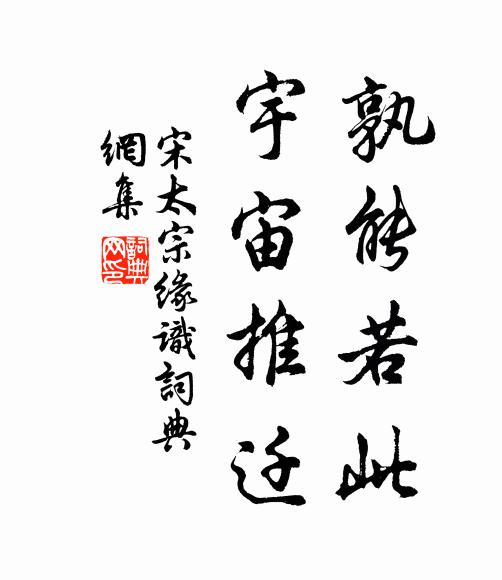 孰能若此
宇宙推迁
宋太宗緣識詞典
網集
詞典
网印